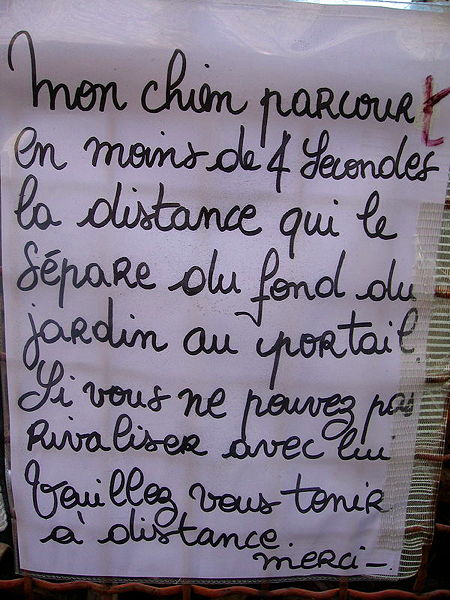 Mon chien parcourt
en moins de 4 secondes
la distance qui le
sépare du fond du
jardin au portail.
Si vous ne pouvez pas
rivaliser avec lui
Veuillez vous tenir
à distance.
merci -